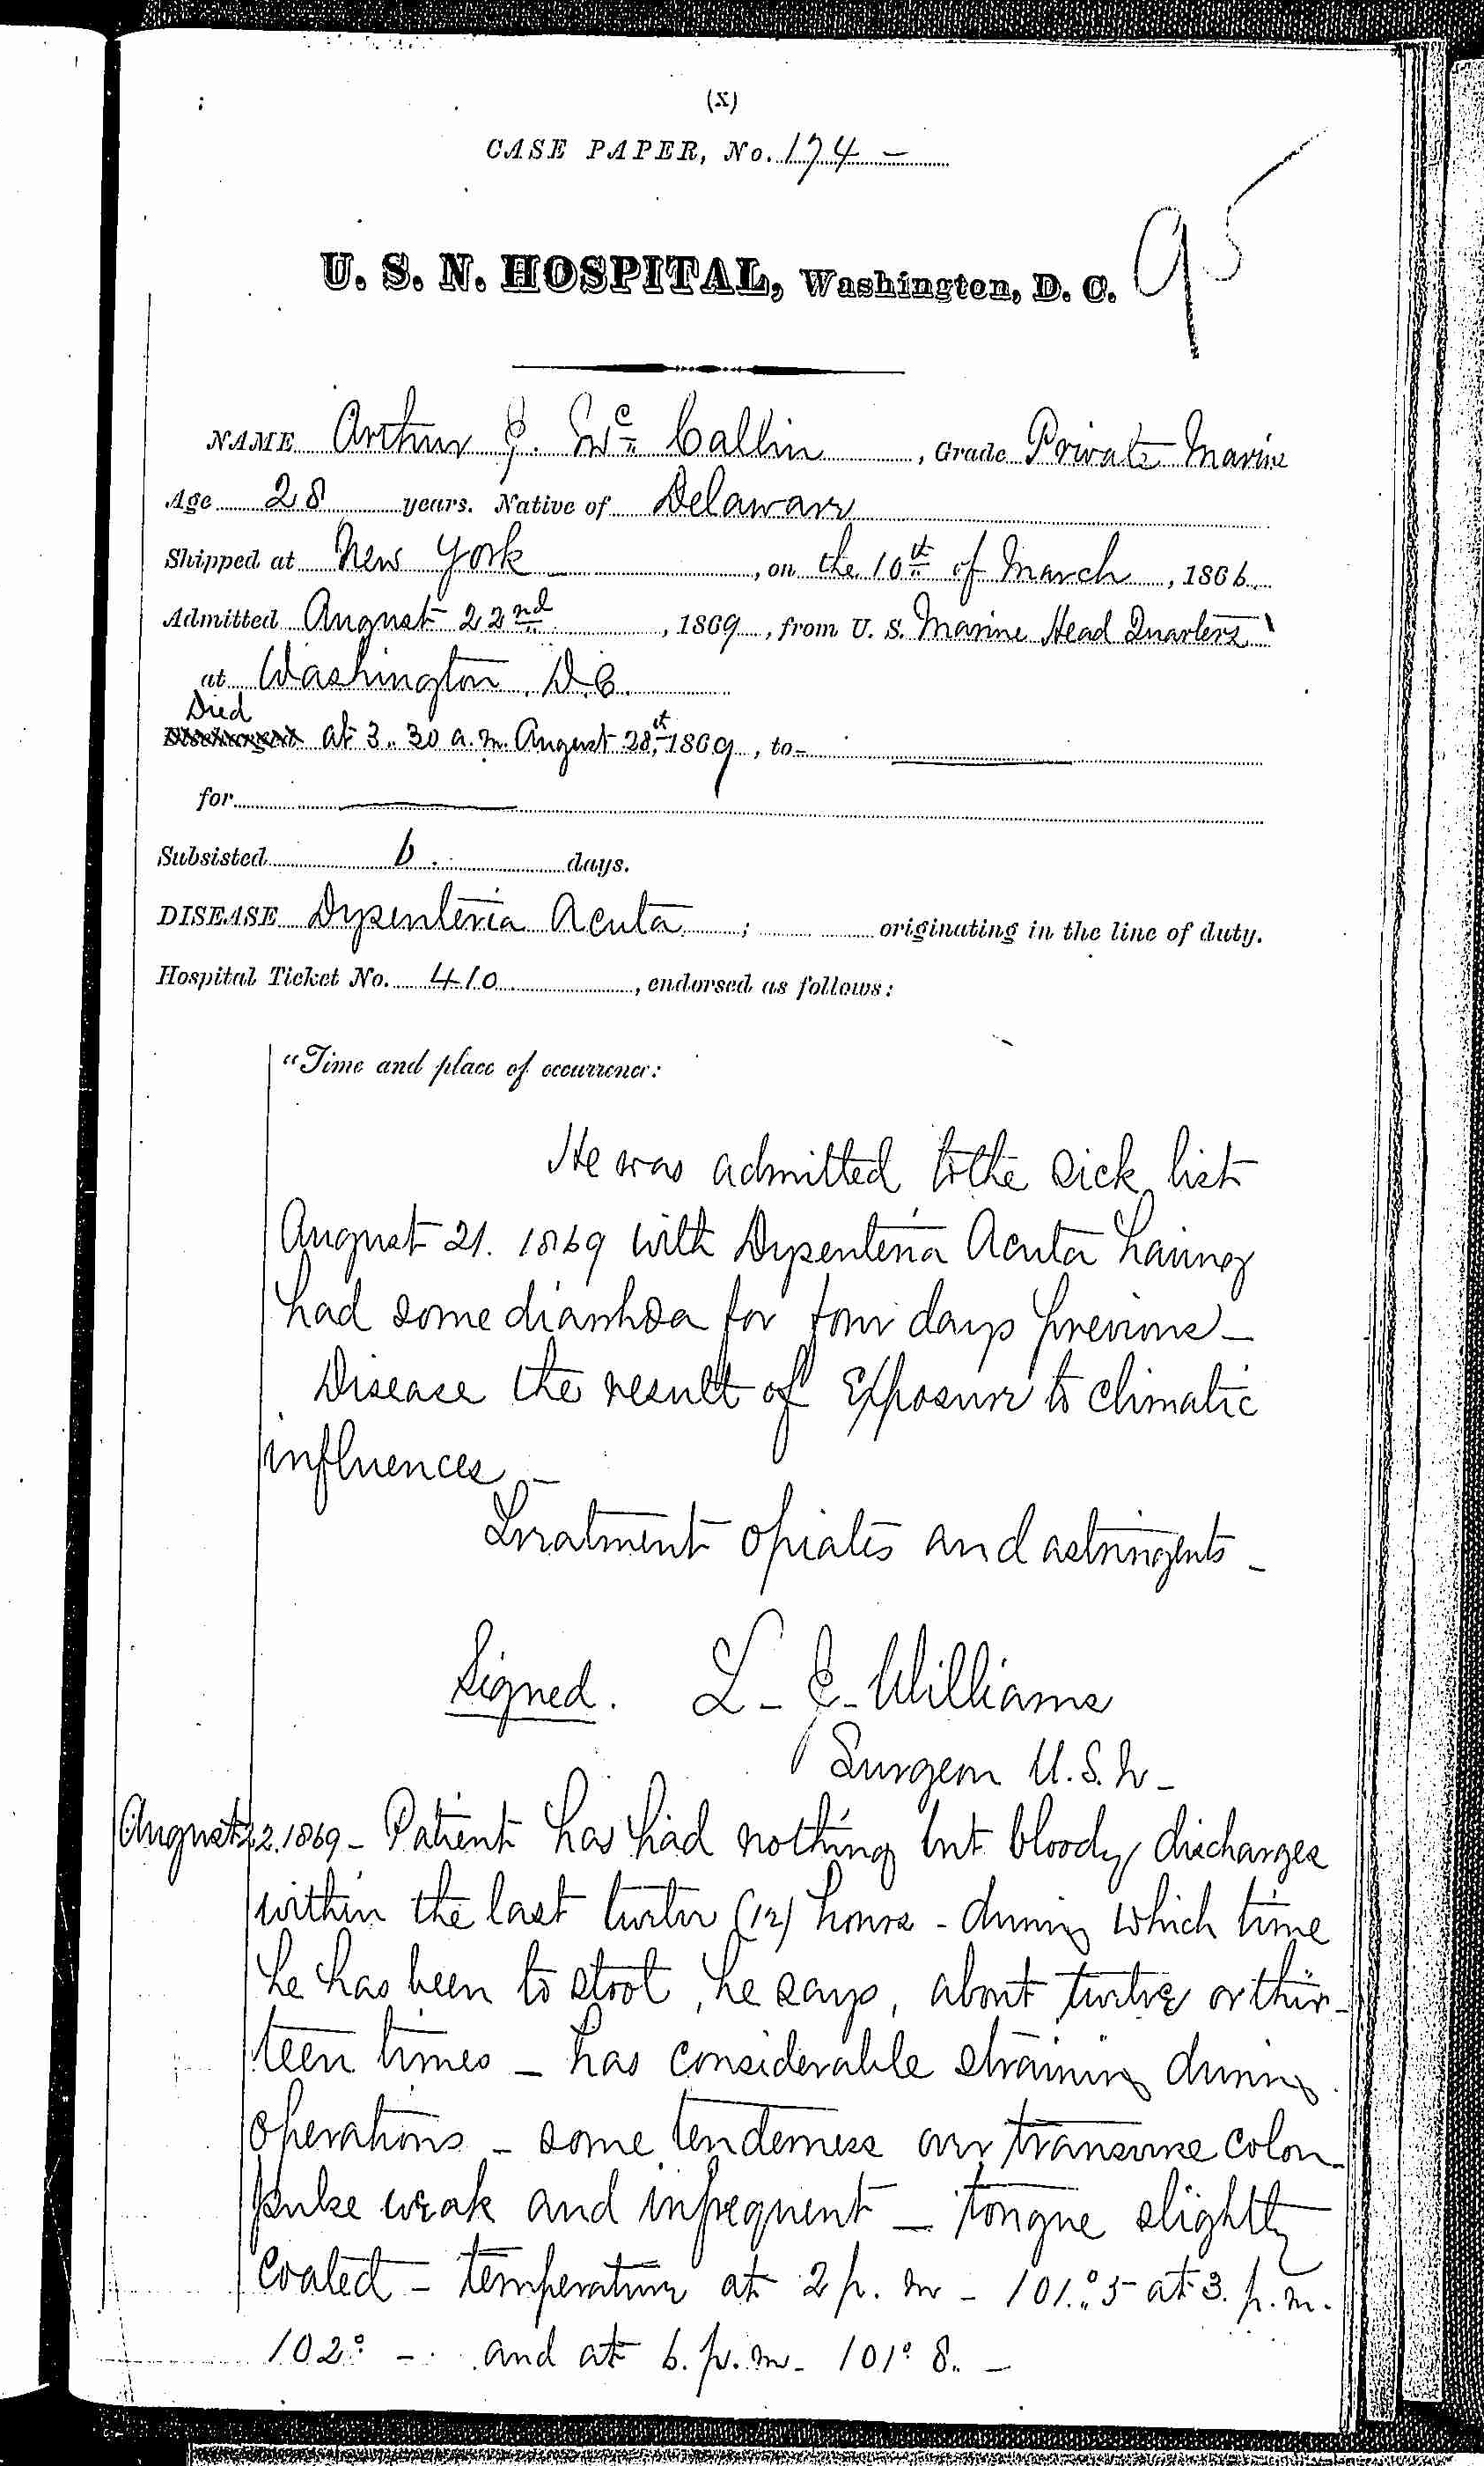 (X)
CASE PAPER, No. 174 –
95
U. S. N. HOSPITAL, Washington, D. C.
NAME Arthur J. Mc Callin, Grade Private Marine
Age 28 years. Native of Delaware
Shipped at New York, on the 10th of March, 1866
Admitted August 22nd, 1869, from U. S. Marine Head Quarters
at Washington, D.C.
Died
Discharged at 3.30 a.m. August 28th, 1869, to –
for
Subsisted 6. days.
DISEASE Dysenteria Acuta; originating in the line of duty.
Hospital Ticket No. 410, endorsed as follows:
"Time and place of occurrence:
He was admitted to the sick list
August 21. 1869 with Dysenteria Acuta having
had some diarrhœa for four days previous –
Disease the result of Exposure to climatic
influences –
Treatment opiates and astringents –
Signed. L – J – Williams
Surgeon U.S.N –
August 22. 1869 – Patient has had nothing but bloody discharges
within the last twelve (12) hours – during which time
he has been to stool, he says, about twelve or thir-
teen times – has considerable straining during
operations – some tenderness over transverse colon –
pulse weak and infrequent – tongue slightly
coated – temperature at 2 p. m – 101.°5 at 3. p. m.
102° – and at 6. p. m – 101° 8. –